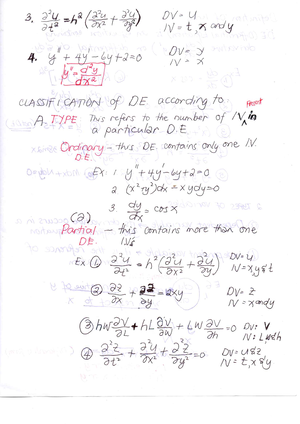 3. ∂²u/∂t² = h² (∂²u/∂x² + ∂²u/∂y²) DV = u
IV = t, x and y
4. y'' + 4y' - 6y + 2 = 0 DV = y
IV = x
y'' = d²y/dx²
CLASSIFICATION of DE according to
A. TYPE This refers to the number of IV in
a particular D.E.
Ordinary - this DE contains only one IV.
D.E.
Ex: 1 y'' + 4y' - 6y + 2 = 0
2 (x² + y²)dx = xy dy = 0
3 dy/dx = cos x
(2)
Partial - this contains more than one
DE. IVs
Ex ① ∂²u/∂t² = h² (∂²u/∂x² + ∂²u/∂y) DV = u
IV = x, y & t
② ∂z/∂x + ∂z/∂y = xy DV = z
IV = x and y
③ hw ∂V/∂L + hL ∂V/∂w + Lw ∂V/∂h = 0 DV: V
IV: L, w & h
④ ∂²z/∂t² + ∂²u/∂x² + ∂²z/∂y² = 0 DV = u & z
IV = t, x & y